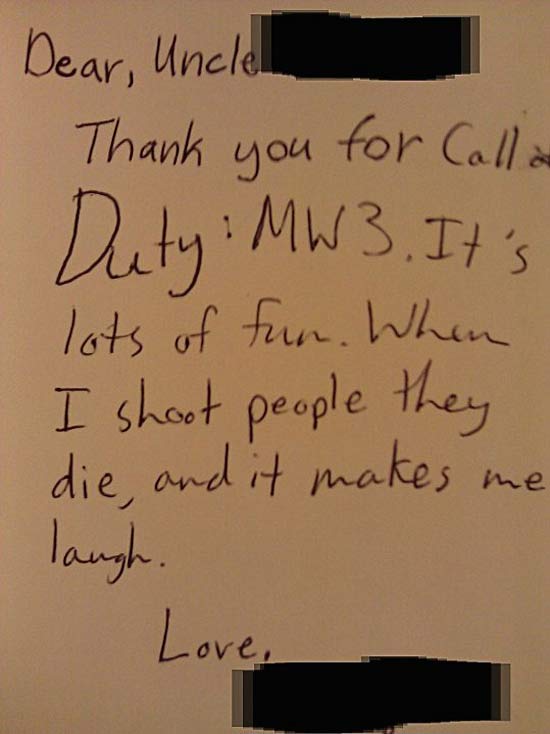 Dear, Uncle
Thank you for Call
Duty: MW3. It's
lots of fun. When
I shoot people they
die, and it makes me
laugh.
Love,